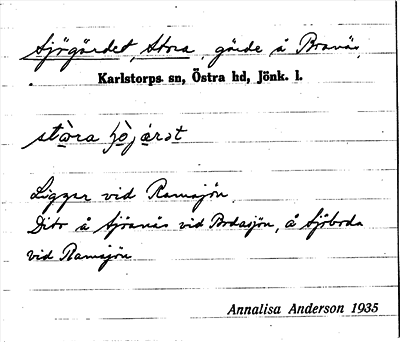 Sjögärdet, Stora, gärde å Bravås,
Karlstorps sn, Östra hd, Jönk. l.
stora
Ligger vid Ramsjön.
Dito å Sjöanäs vid Bodasjön, å Sjöboda
vid Ramsjön
Annalisa Anderson 1935